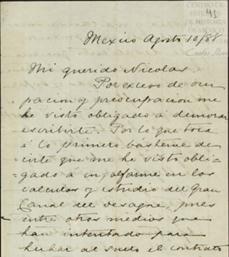 41
Mexico Agosto 12/88
Mi querido Nicolas
Por exceso de ocu
pacion y preocupacion me
he visto obligado a demorar
escribirte. Por lo que toca
á lo primero básteme de-
cirte que me he visto obli-
gado á en los
calculos y estudio del Gran
Canal del Desagüe, pues
entre otros medios que
han intentado para
echar al suelo el contrato